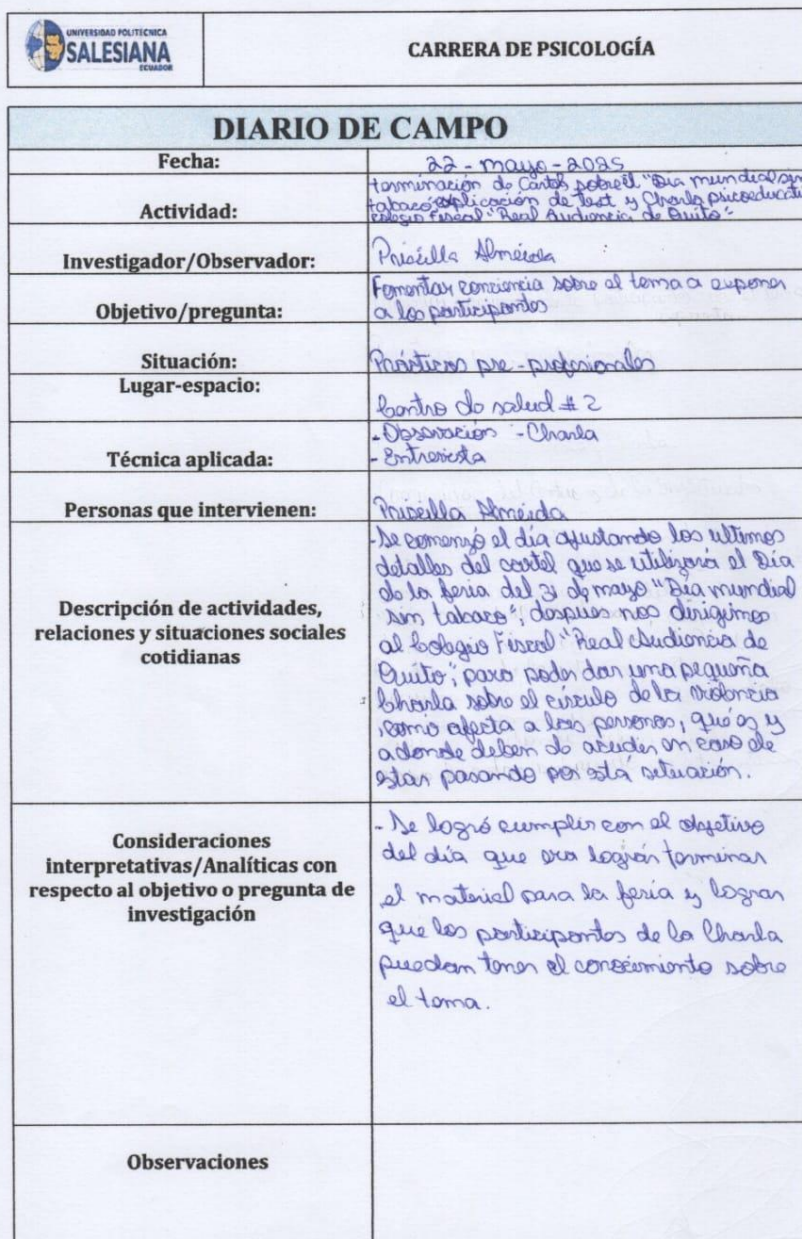 UNIVERSIDAD POLITÉCNICA
SALESIANA
ECUADOR
CARRERA DE PSICOLOGÍA
DIARIO DE CAMPO
Fecha:
22 - mayo - 2025
Actividad:
terminación de Cartel sobre el "Dia mundial sin
tabaco", aplicación de test y Charla psicoeducati
colegio Fiscal "Real Audiencia de Quito"
Investigador/Observador:
Priscilla Almeida
Objetivo/pregunta:
Fomentar conciencia sobre el tema a exponer
a los participantes
Situación:
Prácticas pre-profesionales
Lugar-espacio:
Centro de salud # 2
Técnica aplicada:
- Observación - Charla
- Entrevista
Personas que intervienen:
Priscilla Almeida
Descripción de actividades,
relaciones y situaciones sociales
cotidianas
- Se comenzó el día ajustando los ultimos
detalles del cartel que se utilizará el Dia
de la feria del 31 de mayo "Dia mundial
sin tabaco", despues nos dirigimos
al Colegio Fiscal "Real Audiencia de
Quito", para poder dar una pequeña
Charla sobre el círculo de la violencia
, como afecta a las personas, qué es y
a donde deben de acudir en caso de
estar pasando por esta situación.
Consideraciones
interpretativas/Analíticas con
respecto al objetivo o pregunta de
investigación
- Se logró cumplir con el objetivo
del día que era lograr terminar
el material para la feria y lograr
que los participantes de la Charla
puedan tener el conocimiento sobre
el tema.
Observaciones